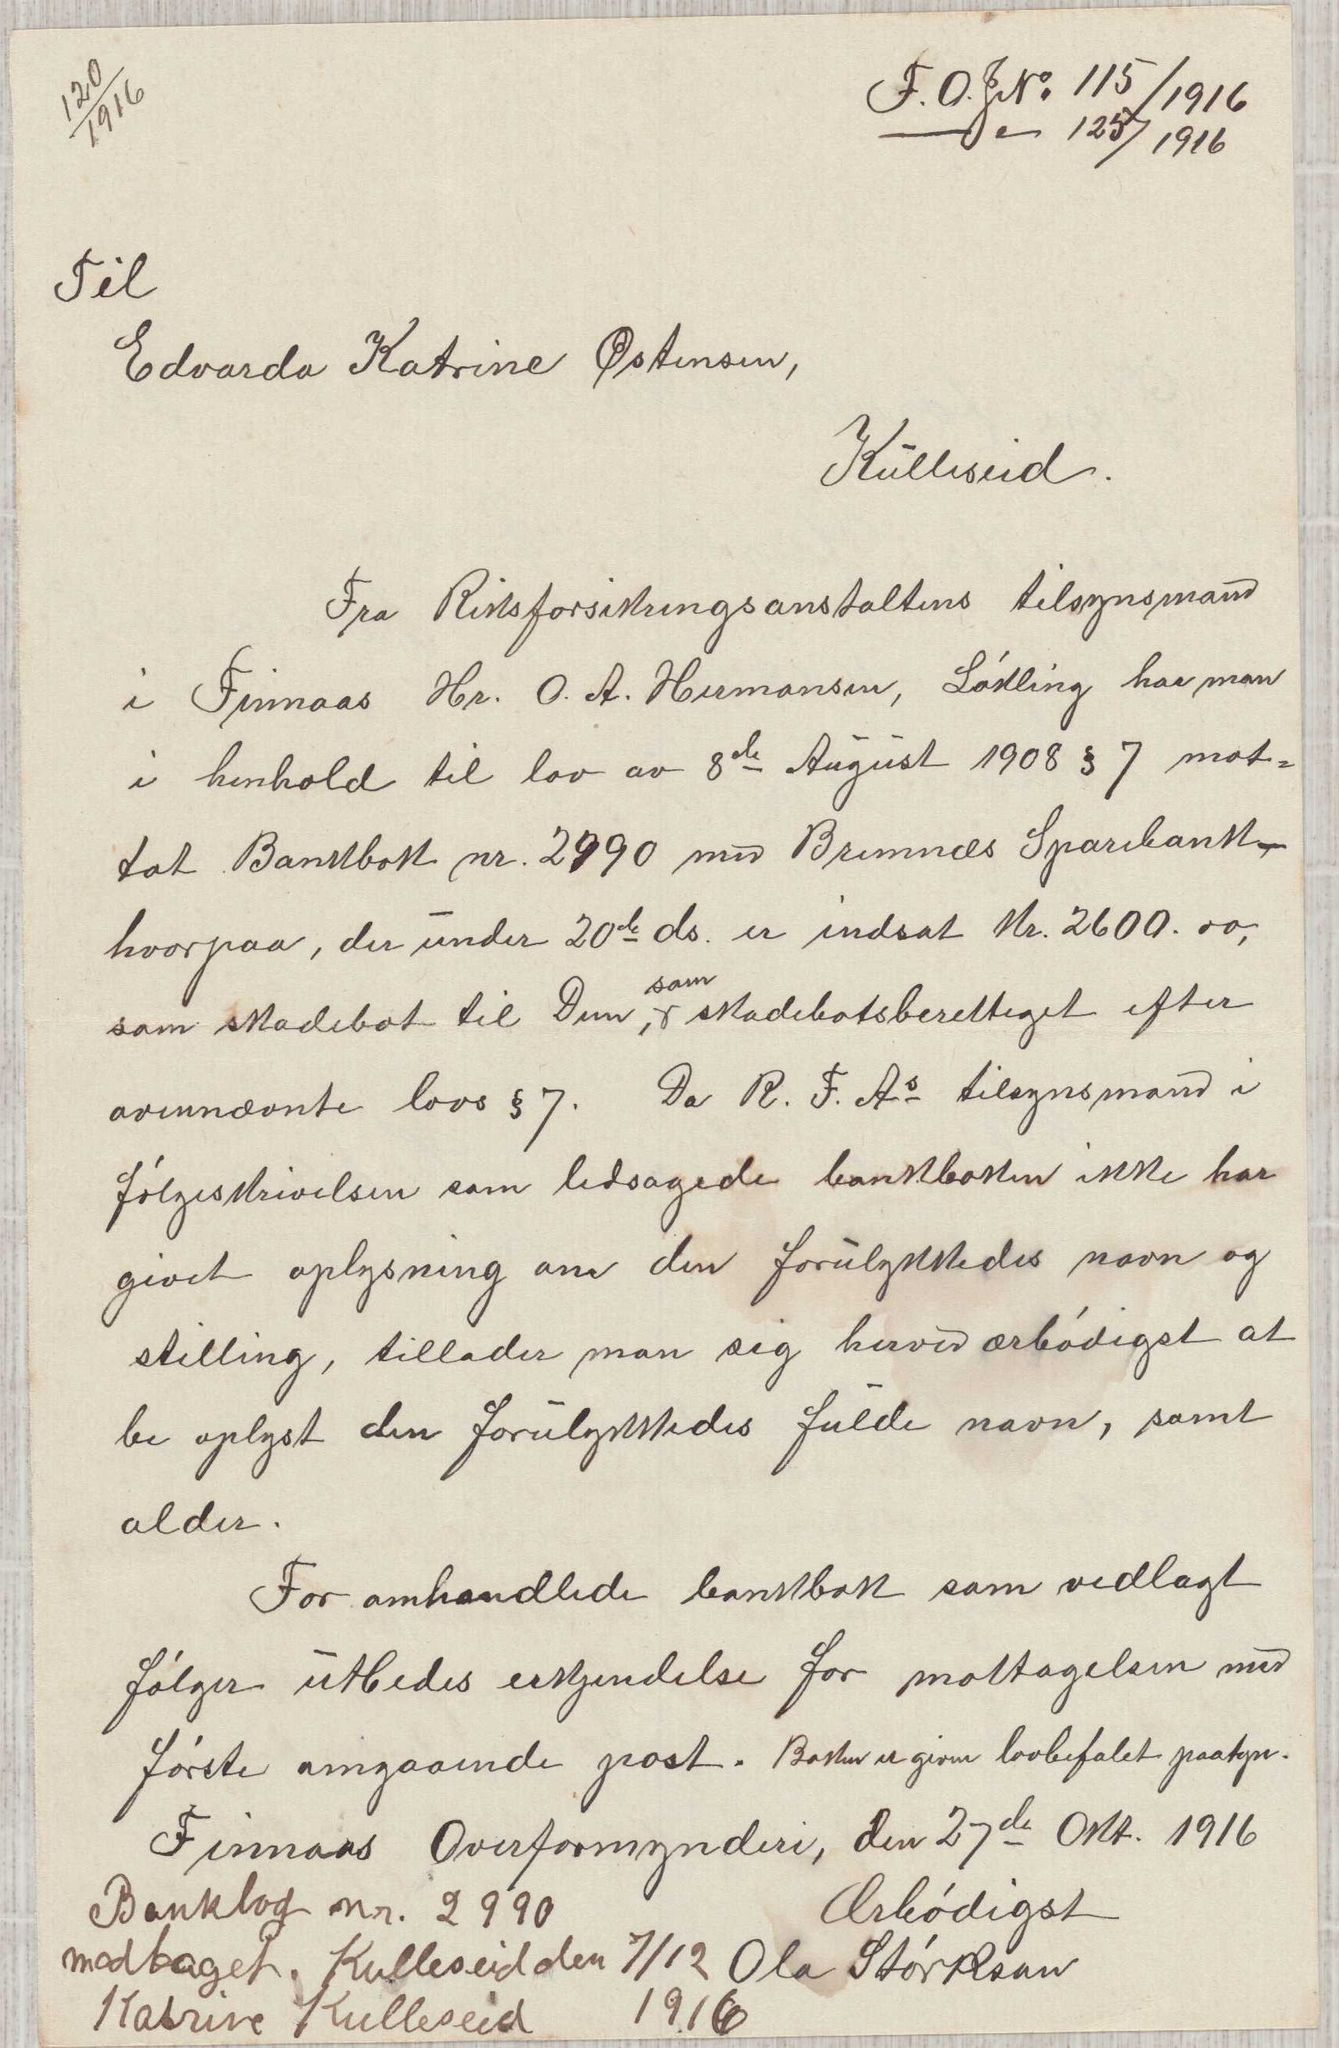 120/1916
F. O. J. No. 115/1916
— „ — 125/1916
Til
Edvarda Katrine Østensen,
Kūlleseid.
Fra Riksforsikringsanstaltens tilsynsmand
i Finnaas Hr. O. A. Hermansen, Lókling har man
i henhold til lov av 8de August 1908 § 7 mot-
tat Bankbok nr. 2990 med Bremnes Sparebank
hvorpaa, der ūnder 20de ds. er indsat kr. 2600.00,
som skadebot til Dem, som er skadebotsberettiget efter
ovennævnte lovs § 7. Da R. F. As tilsynsmand i
fólgeskrivelsen som ledsagede bankboken ikke har
givet oplysning om den forūlykkedes navn og
stilling, tillader man sig herved ærbódigst at
be oplyst den forūlykkedes fūlde navn, samt
alder.
For omhandlede bankbok som vedlagt
fólger ūtbedes erkjendelse for mottagelsen med
fórste omgaaende post. Boken er given lovbefalet paategn.
Finnaas Overformynderi, den 27de Okt. 1916
Ærbódigst
Ola Stórksan
Bankbog nr. 2990
modtaget. Kulleseid den 7/12
1916
Katrine Kulleseid